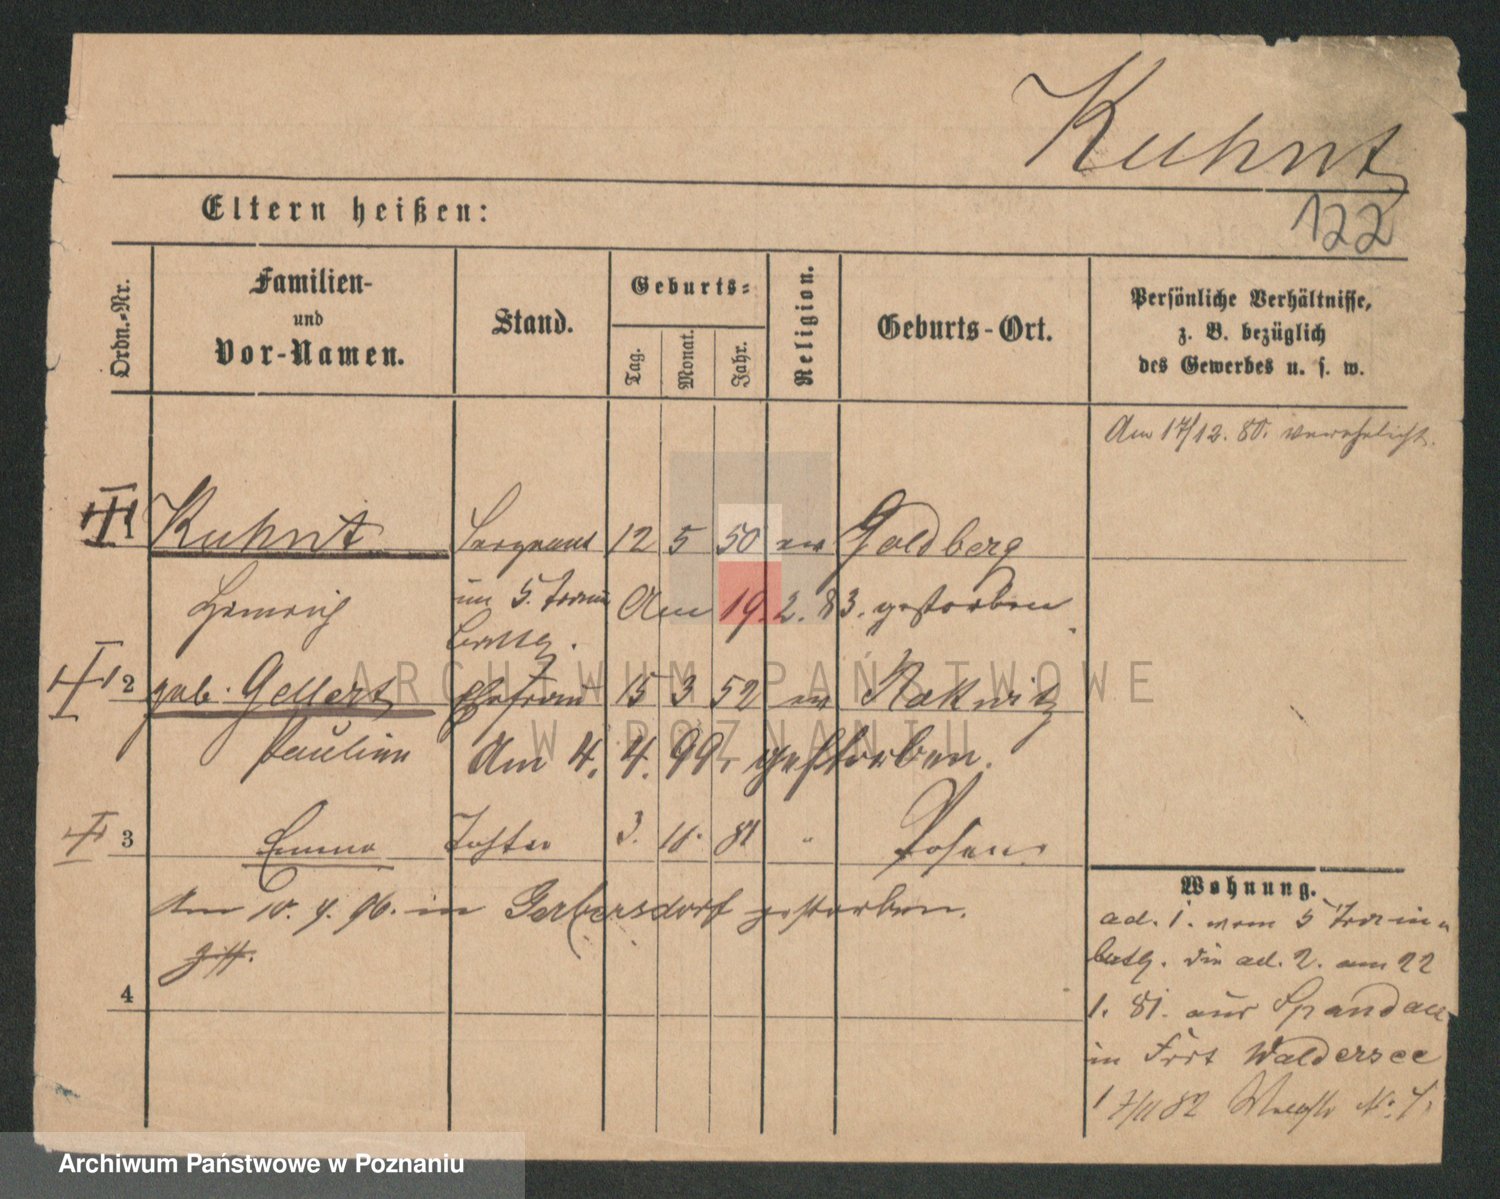 Kuhnt
Eltern heißen:
122
Ordn.-Nr.
Familien-
und
Vor-Namen.
Stand.
Geburts-
Tag.
Monat.
Jahr.
Religion.
Geburts-Ort.
Persönliche Verhältnisse,
z. B. bezüglich
des Gewerbes u. s. w.
Am 17/12. 80. verehelicht.
1 Kuhnt Sergeant 12 5 50 ev Goldberg
Heinrich im 5. Train Am 19. 2. 83. gestorben
2 geb. Gellert Ehefrau 15 3 52 ev Rakwitz
Pauline Am 4. 4. 99. gestorben.
3 Emma Tochter 3. 11. 81 " Posen
Am 10. 4. 96. in Gerbersdorf gestorben.
4
Wohnung.
ad. 1. vom 5 Train
batl. die ad. 2. am 22
1. 81. aus Spandau
in Fort Waldersee
ARCHIWUM PAŃSTWOWE
W POZNANIU
Archiwum Państwowe w Poznaniu